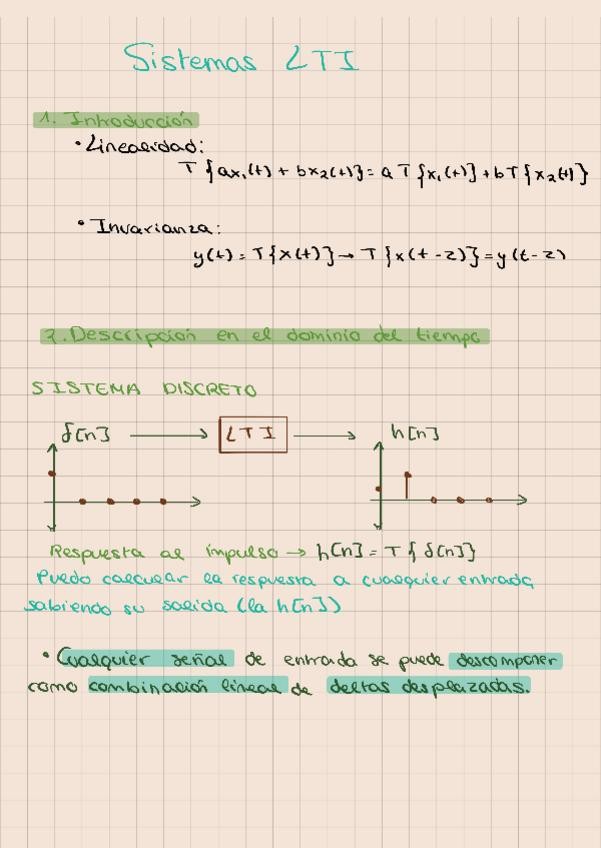 Sistemas LTI
1. Introducción
• Linealidad:
T{ax₁(t) + bx₂(t)} = a T{x₁(t)} + bT{x₂(t)}
• Invarianza:
y(t) = T{x(t)} → T{x(t - z)} = y(t - z)
2. Descripción en el dominio del tiempo
SISTEMA DISCRETO
δ[n] → LTI → h[n]
Respuesta al impulso → h[n] = T{δ[n]}
Puedo calcular la respuesta a cualquier entrada
sabiendo su salida (la h[n])
• Cualquier señal de entrada se puede descomponer
como combinación lineal de deltas desplazadas.